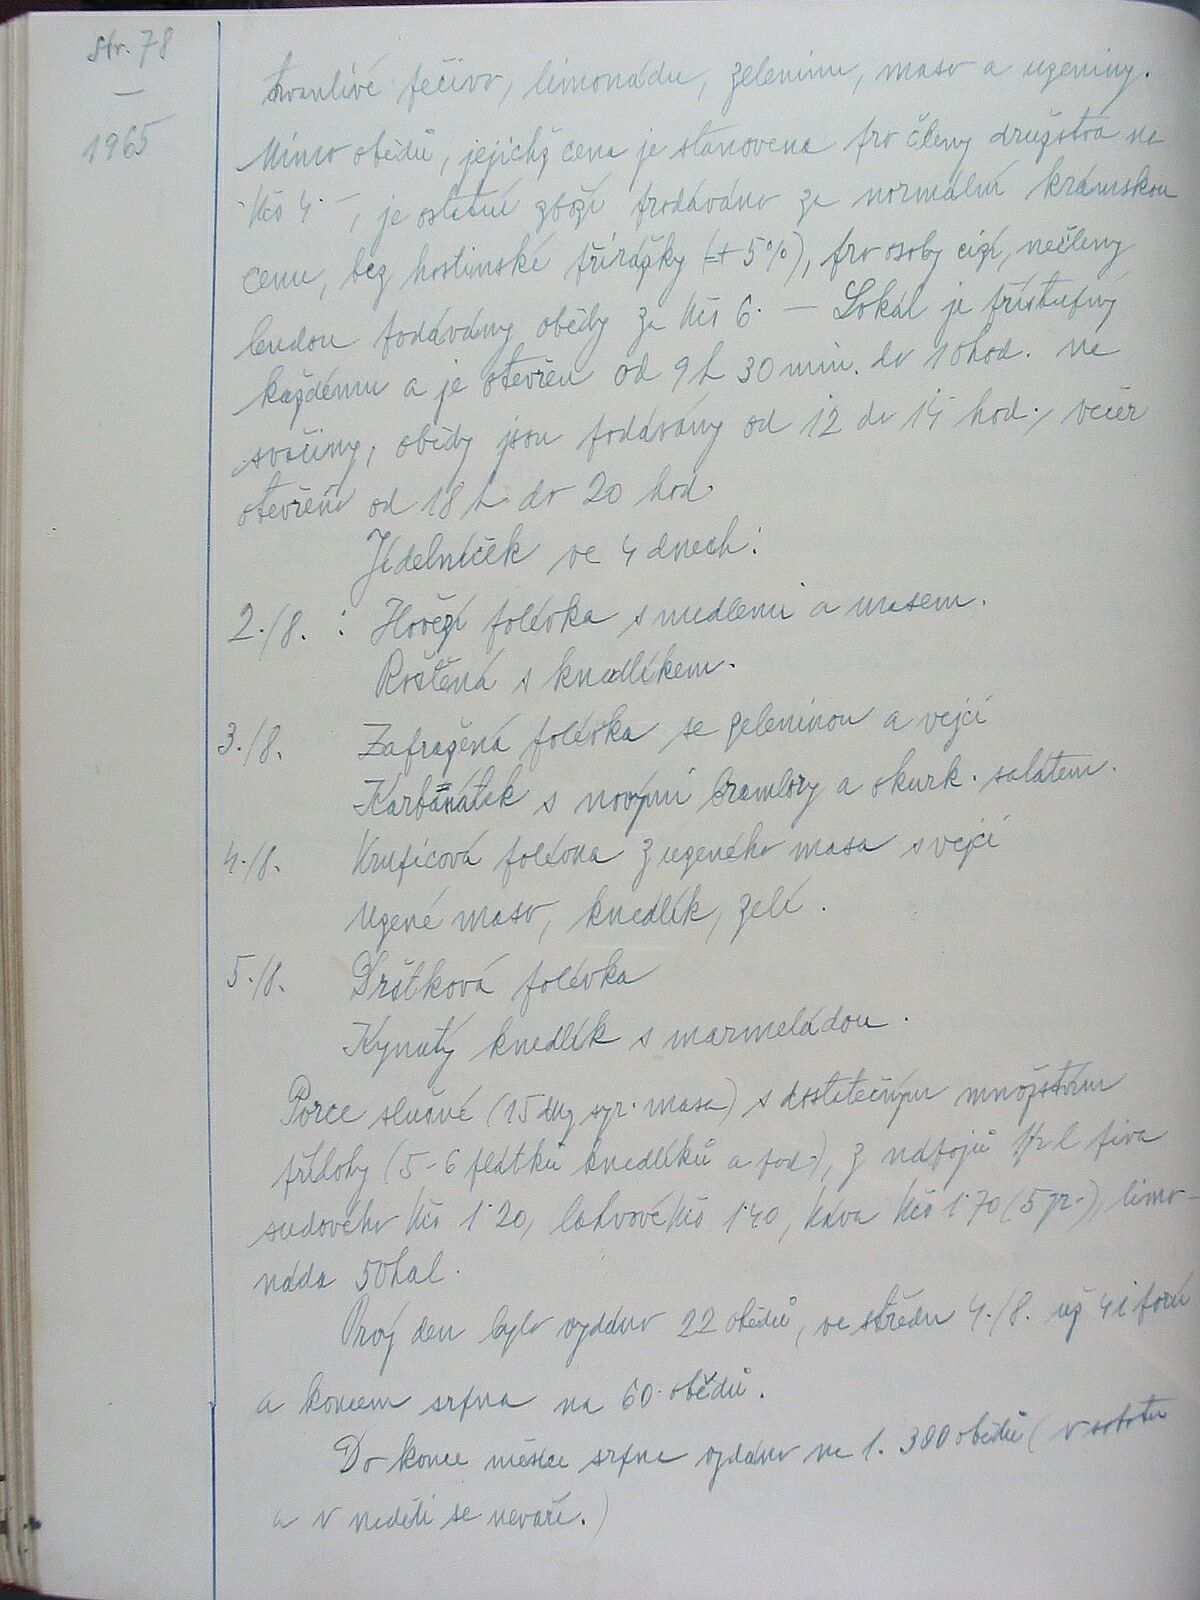 str. 78
—
1965
trvanlivé pečivo, limonádu, zeleninu, maso a uzeniny.
Mimo obědů, jejichž cena je stanovena pro členy družstva na
Kčs 4·–, je ostatní zboží prodáváno za normální krámskou
cenu, bez hostinské přirážky (+ 5%), pro osoby cizí, nečleny
budou podávány obědy za Kčs 6·— Lokál je přístupný
každému a je otevřen od 9 h 30 min. do 10 hod. na
svačiny, obědy jsou podávány od 12 do 14 hod., večer
otevřeno od 18 h do 20 hod.
Jídelníček ve 4 dnech:
2./8. : Hovězí polévka s nudlemi a masem.
Roštěná s knedlíkem.
3./8. Zapražená polévka se zeleninou a vejci
Karbanátek s novými brambory a okurk. salátem.
4./8. Krupicová polévka z uzeného masa s vejci
Uzené maso, knedlík, zelí.
5./8. Drštková polévka
Kynutý knedlík s marmeládou.
Porce slušné (15 dkg syr. masa) s dostatečným množstvím
přílohy (5-6 plátků knedlíků a pod.), z nápojů 1/2 l piva
sudového Kčs 1·20, lahvové Kčs 1·40, káva Kčs 1·70 (5 gr.), limo-
náda 50 hal.
Prvý den bylo vydáno 22 obědů, ve středu 4./8. už 41 porcí
a koncem srpna na 60 obědů.
Do konce měsíce srpna vydáno na 1.380 obědů (v sobotu
a v neděli se nevaří.)